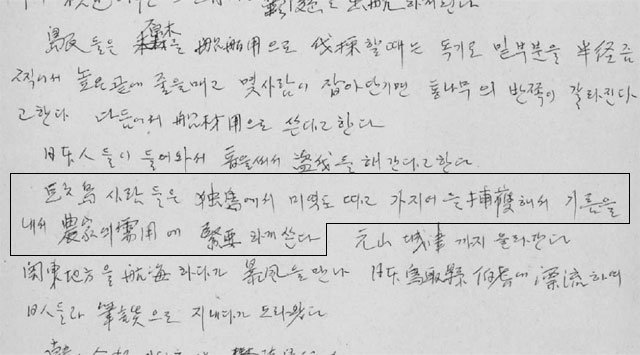 島民들은 를 船舶用으로 伐採할때는 독기로 밑부분을 半经즘
찍어서 높은곧에 줄을매고 몇사람이 잡아단기면 통나무의 반쪽이 갈라진다
고한다 다듬어서 船材用으로 쓴다고한다
日本人들이 들어와서 톱을써서 盜伐을 해간다고한다
巨文島 사람들은 独島에서 미역도 따고 가지어를 捕獲해서 기름을
내서 農家의 需用에 緊要하게 쓴다 元山 까지 올라간다
関東地方을 航海하다가 暴風을 만나 日本 鳥取縣 伯耆에 漂流하며
日人들과 筆談으로 지내다가 도라왔다